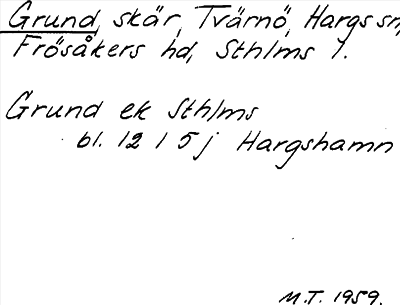 Grund, skär, Tvärnö, Hargs sn,
Frösåkers hd, Sthlms l.
Grund ek Sthlms
bl. 12 I 5 j Hargshamn
M.T. 1959.